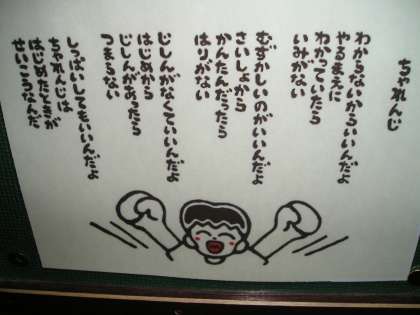 ちゃれんじ
わからないからいいんだよ
やるまえに
わかっていたら
いみがない
むずかしいのがいいんだよ
さいしょから
かんたんだったら
はりがない
じしんがなくていいんだよ
はじめから
じしんがあったら
つまらない
しっぱいしてもいいんだよ
ちゃれんじは
はじめたときが
せいこうなんだ